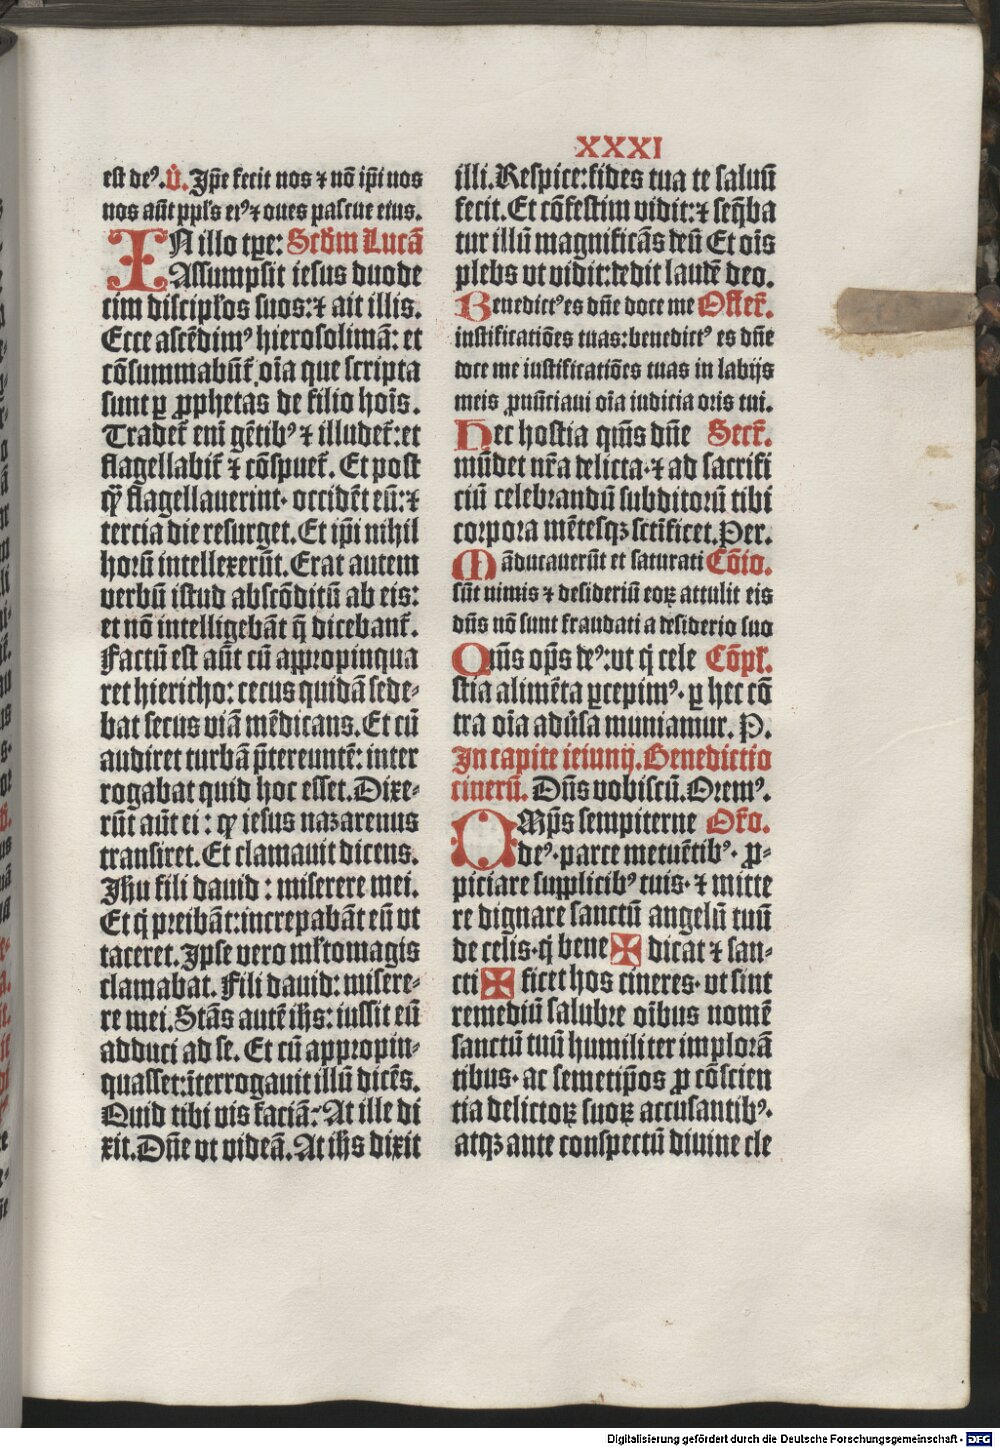 XXXI
est deꝰ. V̇. Ip̄e fecit nos ⁊ nō ip̄i nos
nos aūt ppl̄s eiꝰ ⁊ oues pascue eius.
IN illo tꝑe: Scd̄m Lucā
Assumpsit iesus duode
cim discipl̄os suos: ⁊ ait illis.
Ecce ascēdimꝰ hierosolimā: et
cōsummabūt᷒ oīa que scripta
sunt ꝑ ꝓphetas de filio hoīs.
Tradet᷒ eni̅ gētibꝰ ⁊ illudet᷒: et
flagellabit᷒ ⁊ cōspuet᷒. Et post
qꝫ flagellauerint· occidēt eū: ⁊
tercia die resurget. Et ip̄i nihil
horū intellexerūt. Erat autem
verbū istud abscōditū ab eis:
et nō intelligebāt q̄ dicebant᷒.
Factū est aūt cū appropinqua
ret hiericho: cecus quidā sede-
bat secus viā mēdicans. Et cū
audiret turbā p̄tereuntē: inter
rogabat quid hoc esset. Dixe-
rūt aūt ei: qꝫ iesus nazarenus
transiret. Et clamauit dicens.
Jhu fili dauid: miserere mei.
Et q̇ preibāt: increpabāt eū vt
taceret. Ipse vero ml̄tomagis
clamabat. Fili dauid: misere-
re mei. Stās autē ih̄s: iussit eū
adduci ad se. Et cū appropin-
quasset: īterrogauit illū dicēs.
Quid tibi vis faciā: At ille di
xit. Dn̄e vt videā. At ih̄s dixit
illi. Respice: fides tua te saluū
fecit. Et cōfestim vidit: ⁊ seq̄ba
tur illū magnificās deū Et oīs
plebs vt vidit: dedit laudē deo.
Benedictꝰ es dn̄e doce me Offer᷒.
iustificatiōes tuas: benedictꝰ es dn̄e
doce me iustificatiōes tuas in labijs
meis ꝓnūciaui oīa iudicia oris tui.
Hec hostia qm̄s dn̄e Secr᷒.
mūdet nr̄a delicta· ⁊ ad sacrifi
ciū celebrandū subditorū tibi
corpora mētesqꝫ sctīficet. Per.
Māducauerūt et saturati Cōio.
sūt nimis ⁊ desideriū eoꝝ attulit eis
dn̄s nō sunt fraudati a desiderio suo
Qm̄s op̄s deꝰ: vt q̇ cele Cōpl᷒.
stia alimēta ꝑcepimꝰ· ꝑ hec cō
tra oīa adūsa muniamur. P.
In capite ieiunij. Benedictio
cinerū. Dn̄s vobiscū. Oremꝰ.
OMp̄s sempiterne Or̄o.
deꝰ· parce metuētibꝰ· ꝓ-
piciare supplicibꝰ tuis· ⁊ mitte
re dignare sanctū angelū tuū
de celis· q̇ bene ✠ dicat ⁊ san-
cti ✠ ficet hos cineres· vt sint
remediū salubre oībus nomē
sanctū tuū humiliter implorā
tibus· ac semetip̄os ꝓ cōscien
tia delictoꝝ suoꝝ accusantibꝰ·
atqꝫ ante conspectū diuine cle
Digitalisierung gefördert durch die Deutsche Forschungsgemeinschaft - DFG